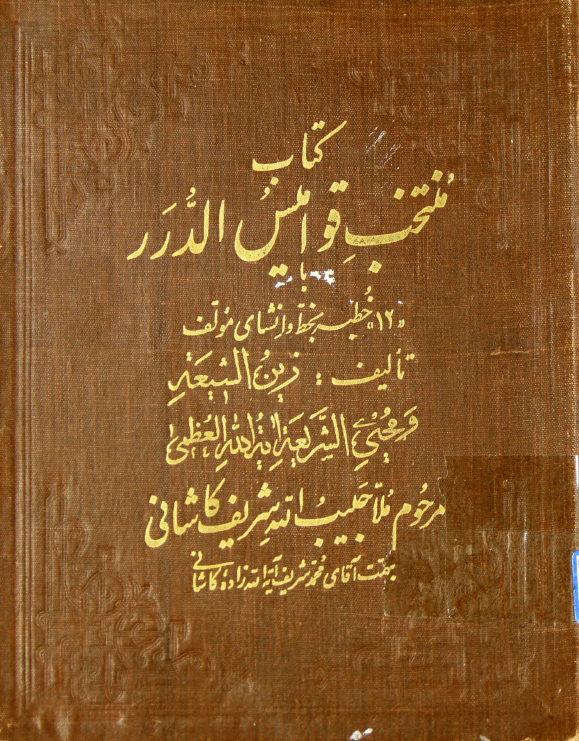 کتاب
مُنتخبِ قوامیسُ الدُّرَر
با
«۱۲» خُطبه بخط و انشای مؤلف
تألیف : زینُ الشیعَةِ
وَ مُحییِ الشَّریعَةِ ایةُ اللهِ العُظمی
مرحوم مُلّا حَبیبُ الله شریف کاشانی
بهمّت آقای محمّد شریف آیة الله زادهٔ کاشانی